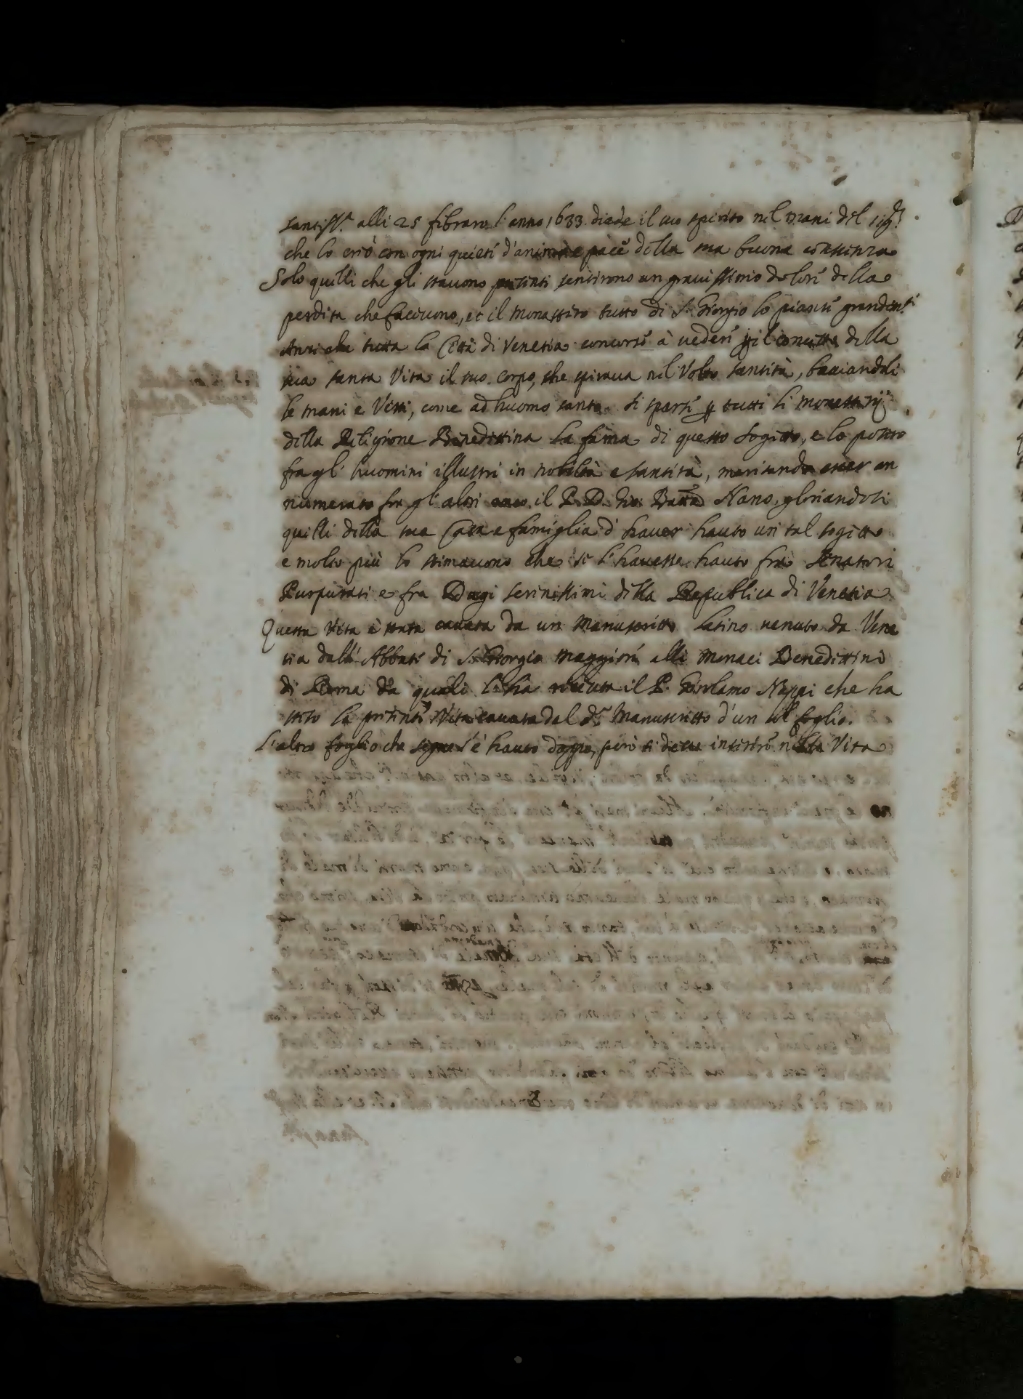 santiss.ª alli 25 febraro l'anno 1633 diede il suo spirito nel mani del Sig.r
che lo creò con ogni quiete d'animo e pace della sua buona conscienza
Solo quelli che gli stavono presenti sentirono un gravissimo dolore della
perdita che facevono, et il monastero tutto di S. Giorgio lo pianse grandem.te
Anzi che tutta la Città di Venetia concorse à vedere p il concetto della
sua santa Vita il suo corpo, che spirava nel Volto santità, baciandoli
le mani e Vesti, come ad huomo santo. si sparse p tutti li monasterij
della Religione Benedettina la fama di questo sogetto, e lo posero
fra gl' huomini illustri in nobiltà e santità, meritando esser an
numerato fra gl' altri il P. D. Gio Batta Nano, gloriandosi
quelli della sua Casa e famiglia d' haver hauto un tal sogetto
e molto più lo stimavono che se l'havesse hauto fra Senatori
Purpurati e fra Dogi serenissimi della Republica di Venetia
Questa Vita è stata cavata da un Manuscritto latino venuto da Vene
tia dall' Abbate di S. Giorgio maggiore alli monaci Benedettini
di Roma da quali l'ha ricevuta il P. Girolamo Neppi che ha
la presente Vita cavata dal d.º Manuscritto d'un sol foglio.
L'altro foglio che segue s'è hauto doppo, però si deve inserire nella Vita